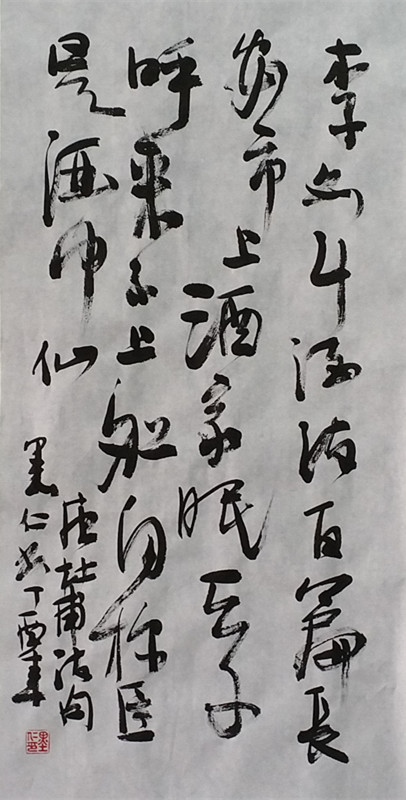 李白斗酒诗百篇長
安市上酒家眠天子
呼来不上船自称臣
是酒中仙
唐杜甫诗句
墨仁书丁酉年